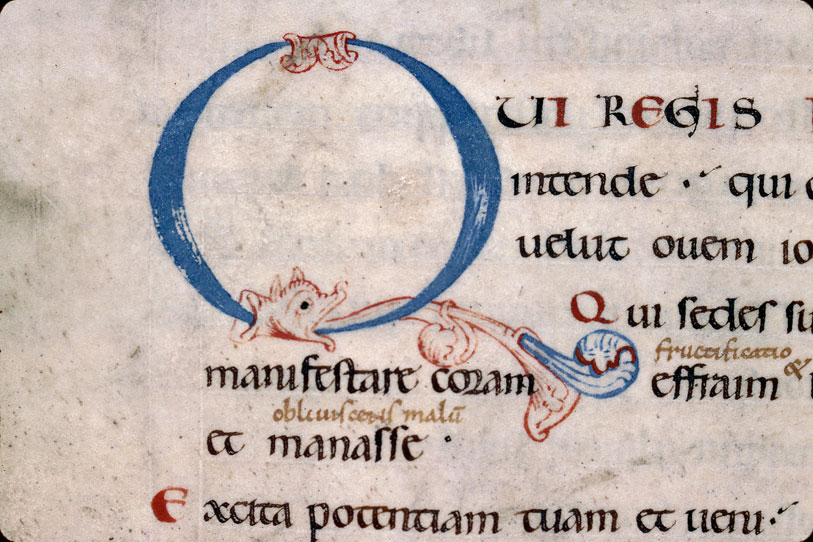 QUI REGIS
intende · qui
velut ovem io
Qui sedes su
fructificatio
manifestare coram effraim &
obliviscens malū
et manasse ·
Excita potentiam tuam et veni ·